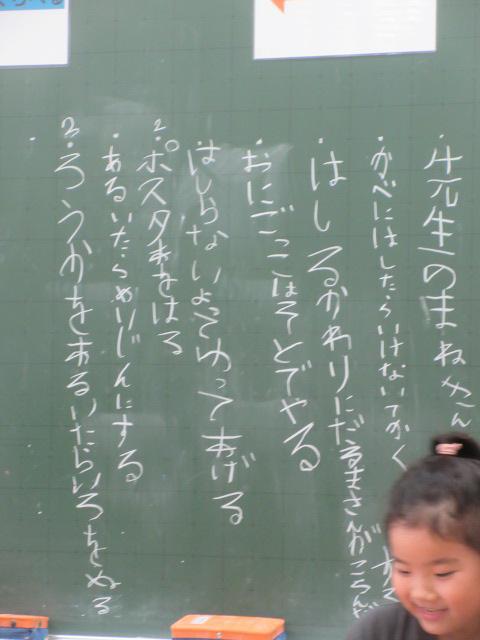 ・4年生のまね
・かべにはしたらいけないてかく
・はしるかわりにだるまさんがころん
・おにごっこはそとでやる
はしらないよってゆってあげる
2・ポスターをはる
・あるいたらめいじんにする
3・ろうかをあるいたらいろをぬる